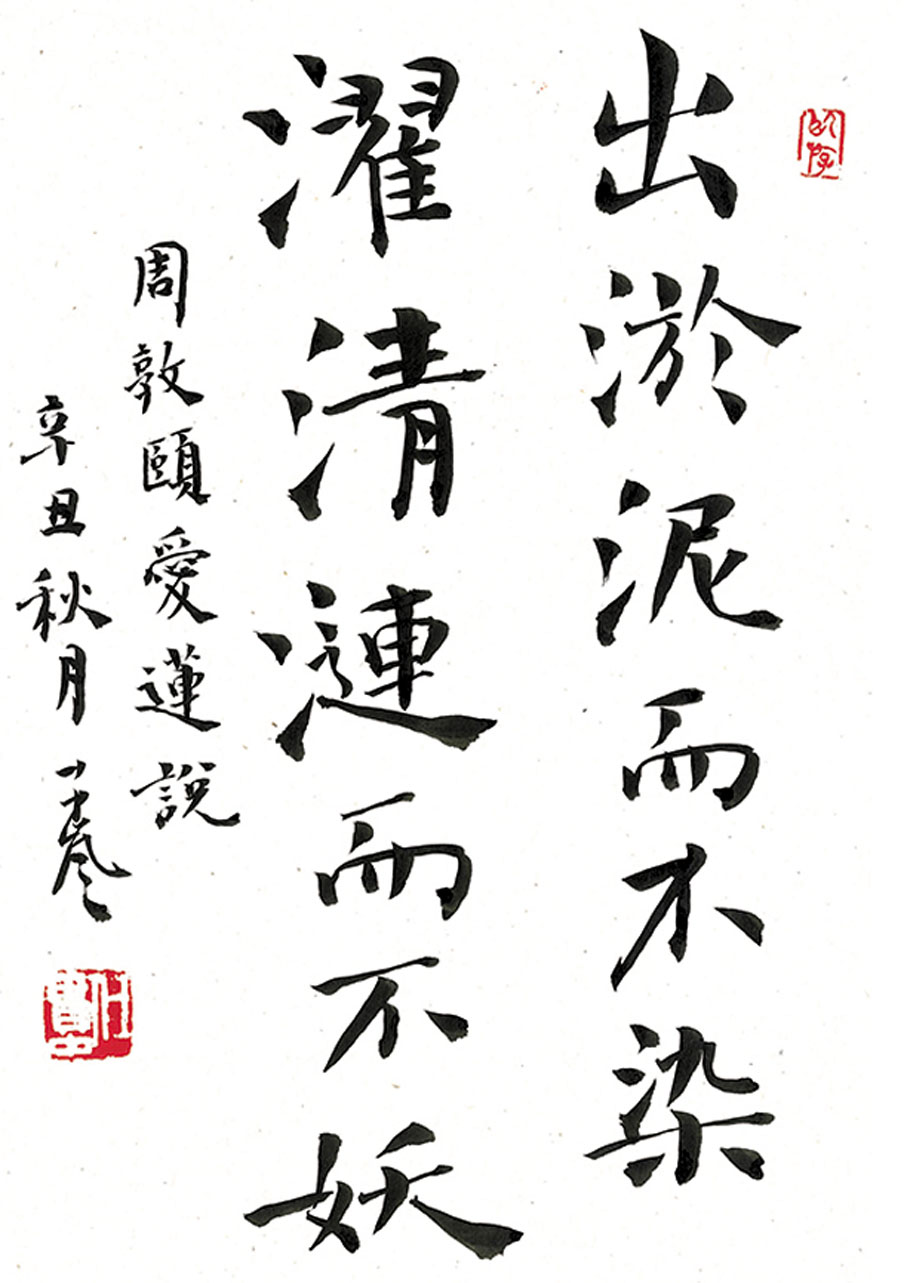 出淤泥而不染
濯清漣而不妖
周敦頤愛蓮說
辛丑秋月